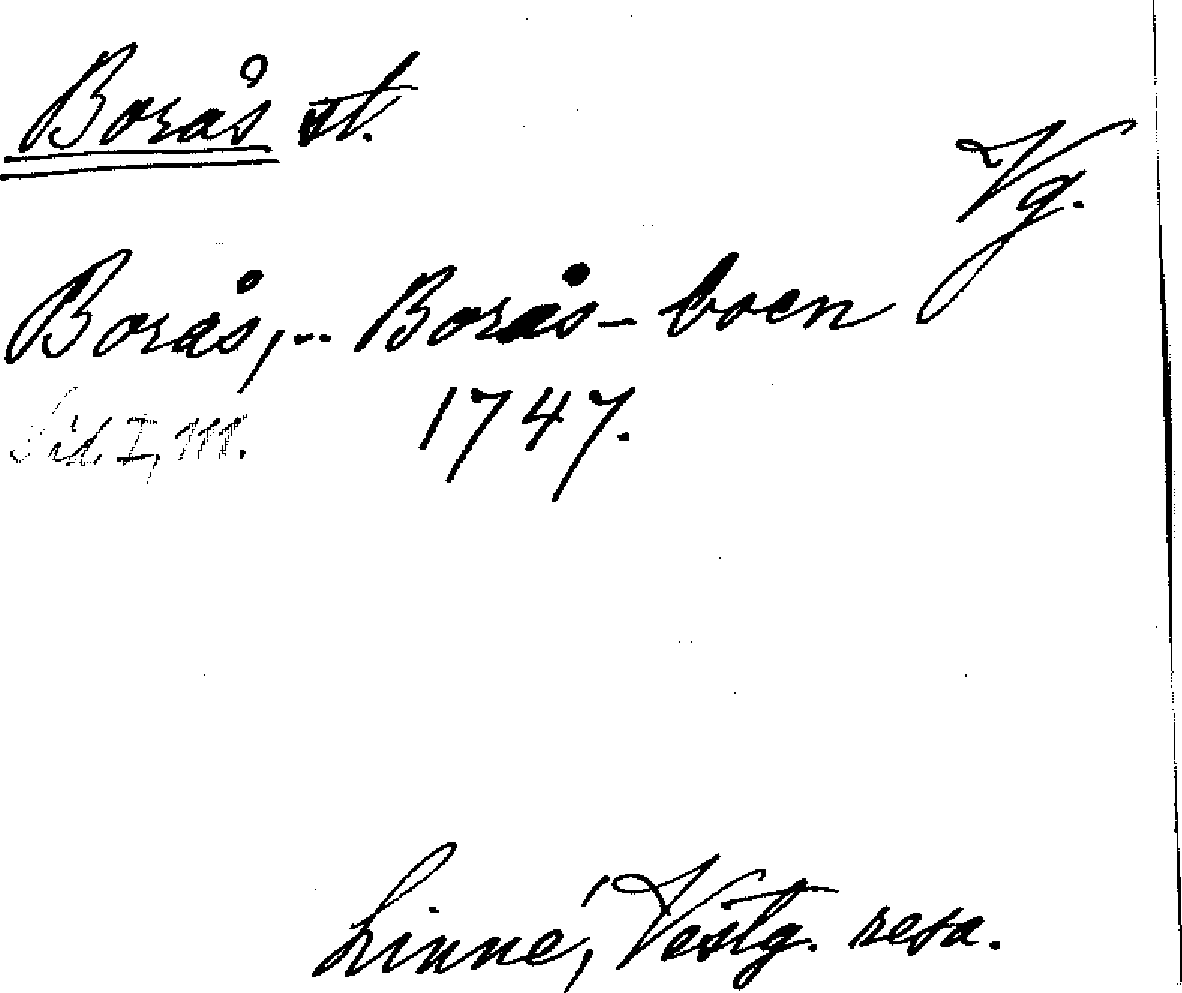 Borås st.
Vg.
Borås,.. Borås-boen
1747.
I, 111.
Linné, Vestg. resa.